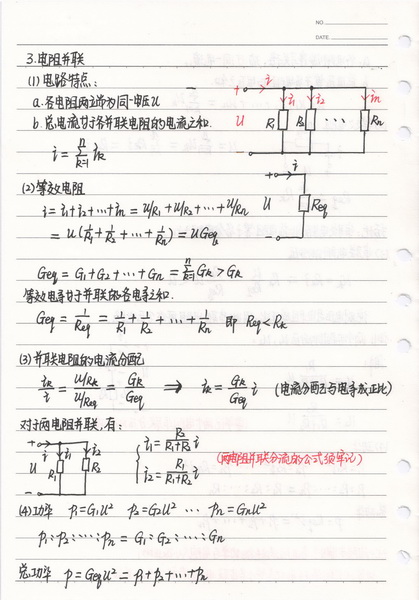 NO.
DATE
3.电阻并联
(1)电路特点:
a.各电阻两端为同一电压u
b.总电流等于各并联电阻的电流之和.
i=∑_{k=1}^{n} i_k
+ i i₁ i₂ iₙ
u R₁ R₂ ··· Rₙ
-
(2)等效电阻
i=i₁+i₂+···+iₙ=u/R₁+u/R₂+···+u/Rₙ
=u(1/R₁+1/R₂+···+1/Rₙ)=uGeq
+ i
u Req
-
Geq=G₁+G₂+···+Gₙ=∑_{k=1}^{n} Gk>Gk
等效电导等于并联的各电导之和.
Geq=1/Req=1/R₁+1/R₂+···+1/Rₙ 即 Req<Rk
(3)并联电阻的电流分配
i_k/i=(u/Rk)/(u/Req)=Gk/Geq ⇒ i_k=(Gk/Geq)i (电流分配与电导成正比)
对于两电阻并联,有:
+ i i₁ i₂
u R₁ R₂
-
i₁=R₂/(R₁+R₂) i
i₂=R₁/(R₁+R₂) i
(两电阻并联分流的公式须牢记)
(4)功率 p₁=G₁u² p₂=G₂u² ··· pₙ=Gₙu²
p₁:p₂:···:pₙ=G₁:G₂:···:Gₙ
总功率 p=Gequ²=p₁+p₂+···+pₙ